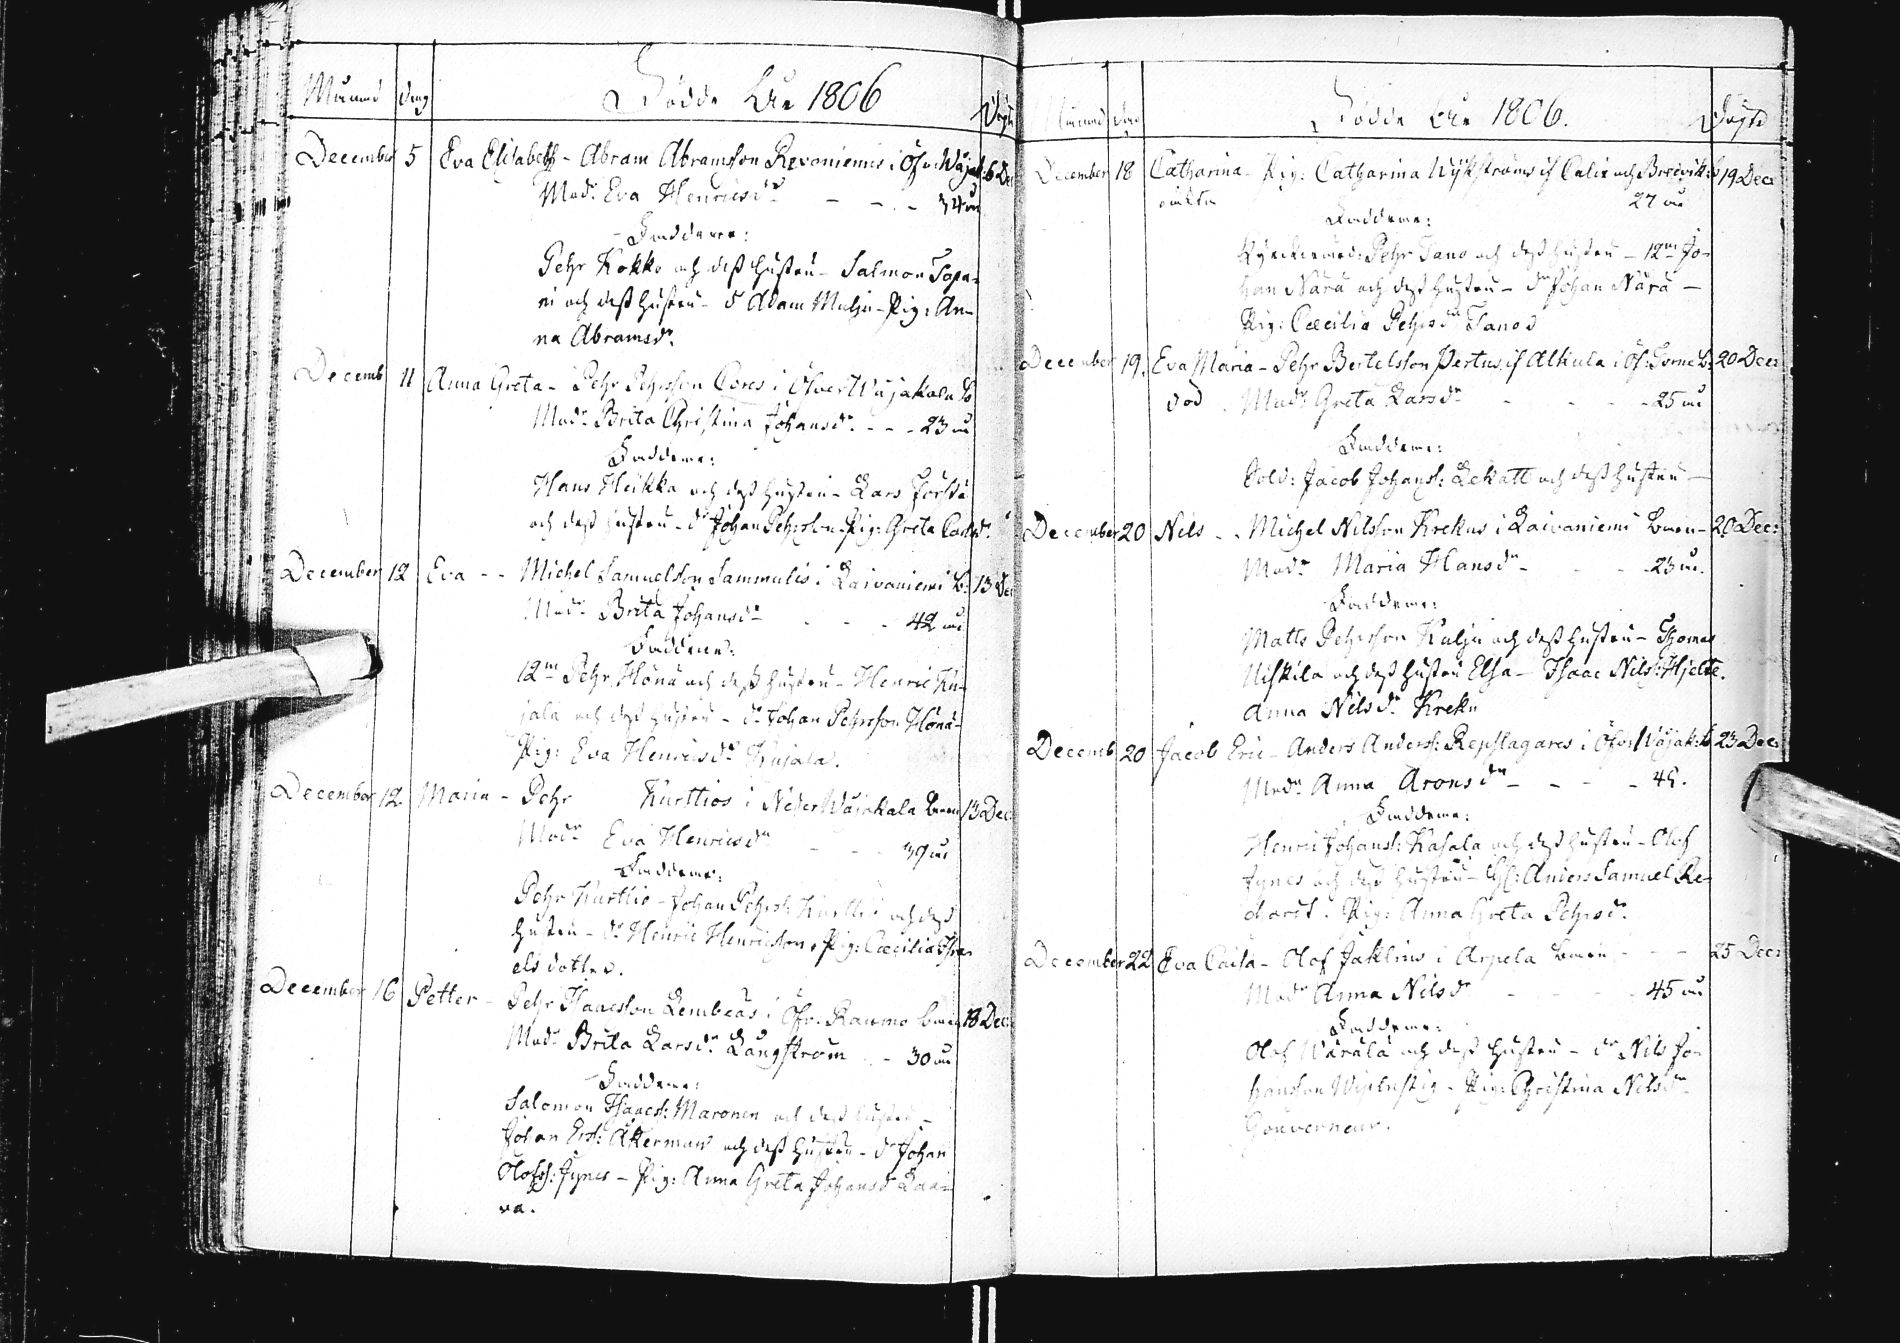 Månad dag Födde År 1806 Döpte
December 5 Eva Elisabeth - Abram Abramsson Revoniemis i Öfv: Wojak: 6 Dec
Mod: Eva Henricsdr 34 år
Faddrar:
Pehr Kokko och dess hustru - Salmon Topa-
ri och dess hustru - d Adam Mulju - Pig: An-
na Abramsdr
Decemb 11 Anna Greta - Pehr Pehrsson Cores i ÖfverWojakala b
Modr Brita Christina Johansdr 23 år
Faddrar:
Hans Heikka och dess hustru - Lars
och dess hustru - dr Johan Pehrsson - Pig: Greta Larsdr
December 12 Eva - - Michel Samuelsson Sammulis i Laivaniemi b: 13 Dec
Modr Brita Johansdr 42 år
Faddrar:
12mn Pehr Hönä och dess hustru - Henric Ku-
jala och dess hustru - dr Johan Pehrsson Hönä -
Pig: Eva Henricsdr Kujala.
December 12 Maria - Pehr Kurttios i NederWojakala 13 Dec:
Modr Eva Henricsdr 39 år
Faddrar:
Pehr Kurttio - Johan Pehrs: Kurttio och dess
hustru - dr Henric Henricsson, Pig: Cæcilia Isra-
els dotter.
December 16 Petter - Pehr Isaacsson Lembeäs i Öfv: Raumo 18 Dec:
Modr Brita Larsdr Långström 30 år
Faddrar:
Salomon Isaacs: Maronen och dess hustru -
Johan Ers: Åkerman och dess hustru - dr Johan
Olofss: Jynes - Pig: Anna Greta Johansdr Laa-
va.
Månad dag Födde År 1806. Döpte
December 18 Catharina - Pig: Catharina Nykströms if Calix och 19 Dec:
27 år
Faddrar:
Pehr Tano och dess hustru - 12mn Jo-
han Närä och dess hustru - dr Johan Närä -
Pig: Cæcilia Pehrsdr Tano
December 19. Eva Maria - Pehr Bertelsson Pertus if Alkula i Öf: Torne b: 20 Dec:
död Modr Greta Larsdr 25 år
Faddrar:
Sold: Jacob Johans: Lekatt och dess hustru -
December 20 Nils - Michel Nilsson Krekus i Laivaniemi 20 Dec:
Modr Maria Hansdr 23 år.
Faddrar:
Matts Pehrsson Kulju och dess hustru - Thomas
Niskila och dess hustru Elsa - Isaac Nils: Hjelte.
Anna Nilsdr Kreku
Decemb 20 Jacob Eric - Anders Anders: Repslagares i Öfv: Wojak: b 23 Dec:
Modr Anna Aronsdr
Faddrar:
Henric Johans: Kasala och dess hustru - Olof
Jynes och dess hustru - Anders Samuel Re-
Pig: Anna Greta Pehrsdr.
December 22 Eva Caisa - Olof Jaklins i Arpela 25 Dec:
Modr Anna Nilsdr 45 år
Faddrar:
Olof Wärälä och dess hustru - dr Nils Jo-
hansson - Pig: Christina Nilsdr
Gouverneur.